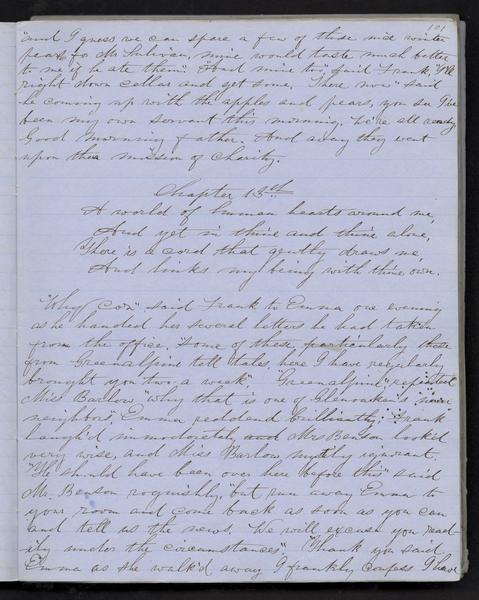 101
"and I guess we can spare a few of those nice winter
pears for Mr Sulivan, mine would taste much better
to me if he ate them". "And mine too, said Frank, "I'll
right down cellar and get some, There now" said
he coming up with the apples and pears, you see I've
been my own servant this morning, we're all ready.
Good morning father. And away they went
upon their mission of charity.
Chapter 13th
A world of human hearts around me,
And yet in thine and thine alone,
There is a cord that gently draws me,
And links my being with thine own.
"Why Coz", said Frank to Emma one evening
as he handed her several letters he had taken
from the office, "Some of these, particularly those
from Greenalpine tell tales, here I have regularly
brought you two a week" "Greenalpine", repeated
Miss Barlow "why that is one of Glenoaken's 'near
neighbors', Emma reddend brilliantly, Frank
laugh'd immoderately, and Mrs Benson look'd
very wise, and Miss Barlow mighty ignorant.
"He should have been over here before this" said
Mr. Benson roguishly, "but run away Emma to
your room and come back as soon as you can
and tell us the news. We will excuse you read-
ily under the circumstances". "Thank you said
Emma as she walk'd away I frankly confess I have